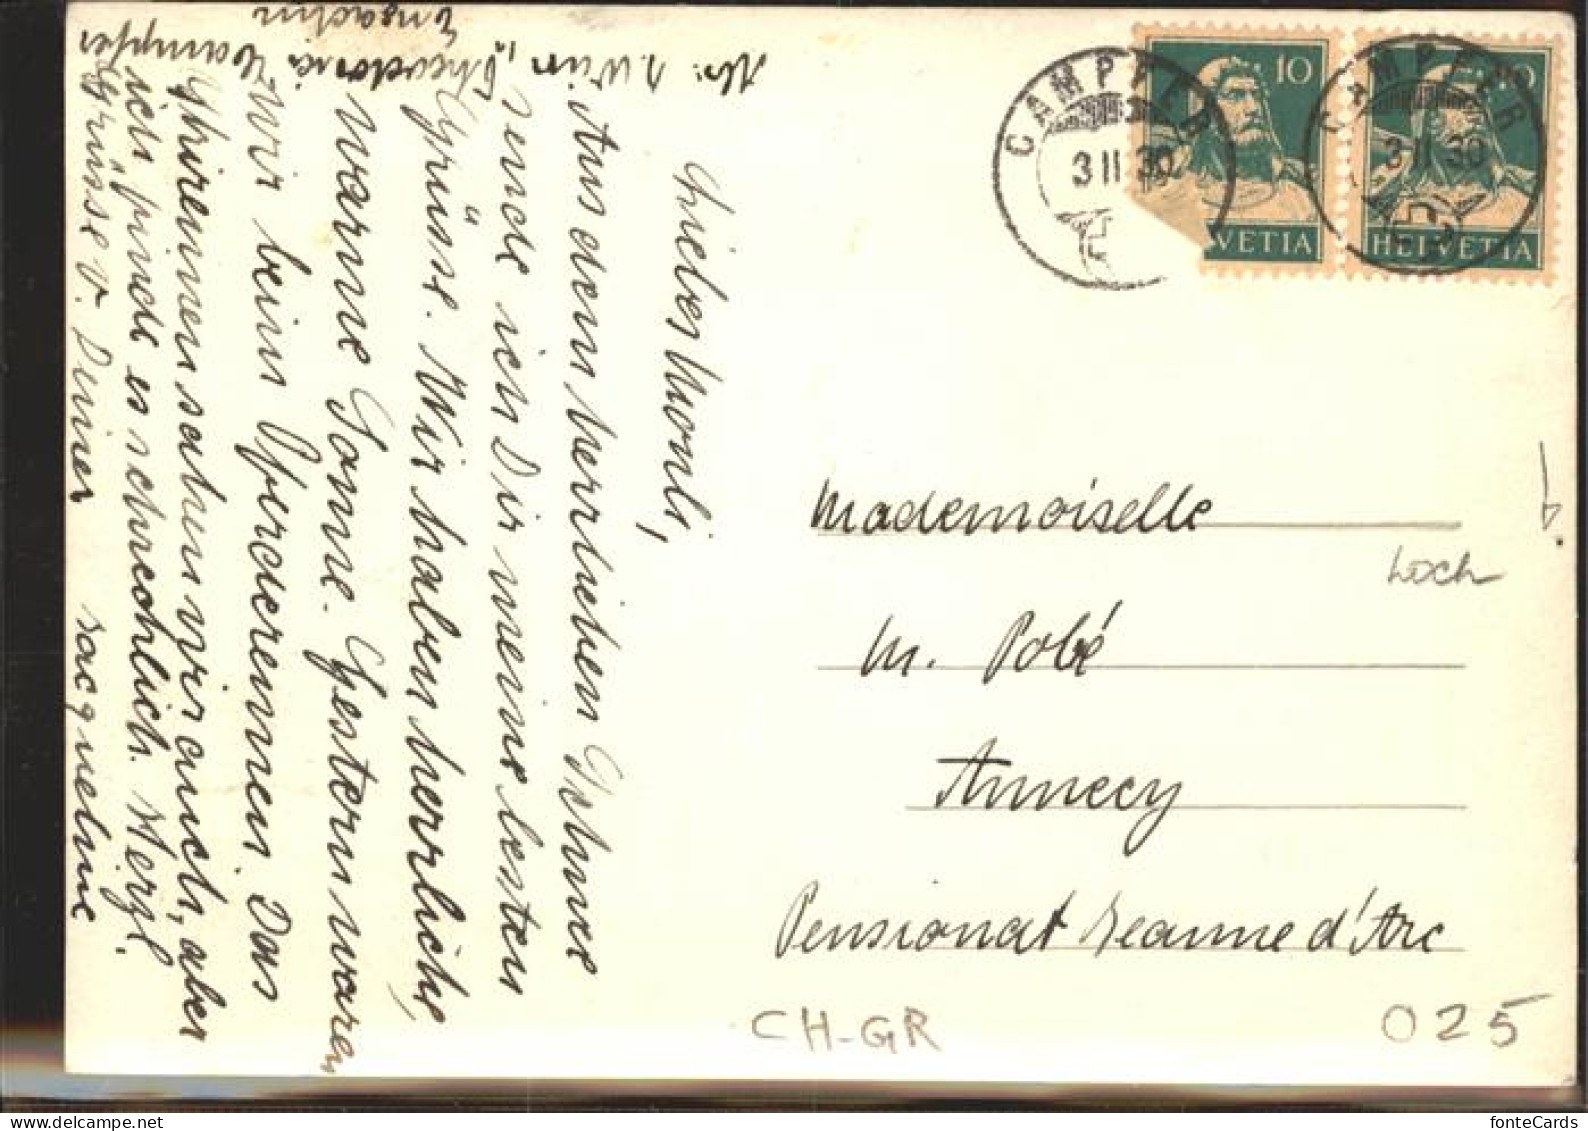 Adr: "Theodora"
Campfer
Engadin
Liebes Monli,
Aus dem herrlichen Schnee
sende ich Dir meine besten
Grüsse. Wir haben herrliche,
warme Sonne. Gestern waren
wir beim Pferderennen. Das
Skirennen sahen wir auch, aber
ich finde es schrecklich. Herzl.
Grüsse v. Deiner Jacqueline
CAMPFER
3 II 30
10
HELVETIA
CAMPFER
3 II 30
10
HELVETIA
Mademoiselle
Loch
M. Pobé
Annecy
Pensionat Jeanne d'Arc
CH-GR
025
fonteCards